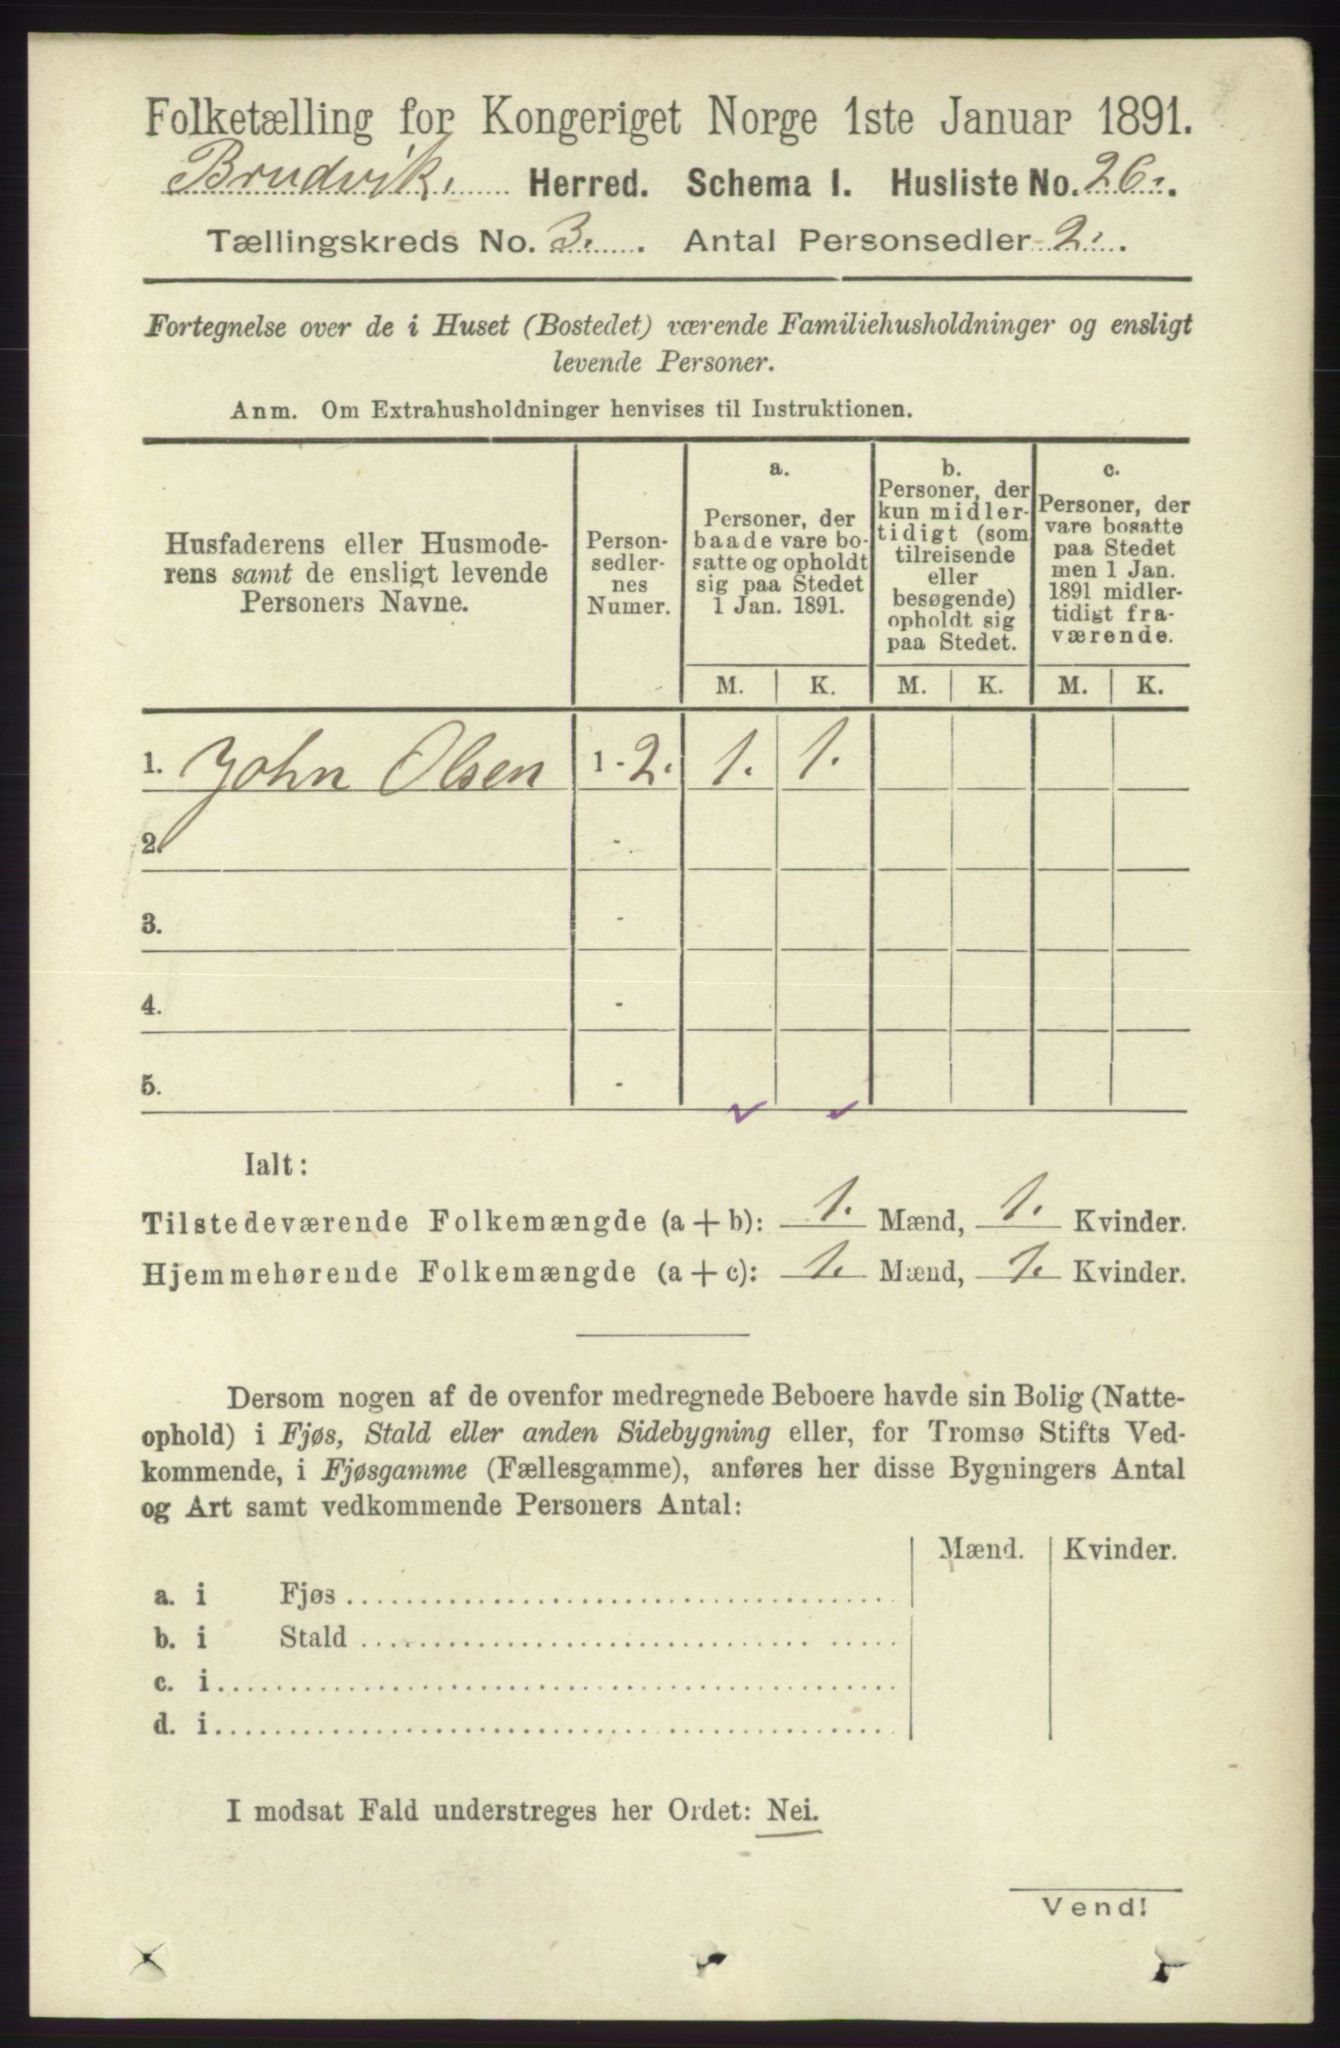 Folketælling for Kongeriget Norge 1ste Januar 1891.
Brudvik. Herred. Schema I. Husliste No. 26.
Tællingskreds No. 3. Antal Personsedler 2.
Fortegnelse over de i Huset (Bostedet) værende Familiehusholdninger og ensligt
levende Personer.
Anm. Om Extrahusholdninger henvises til Instruktionen.
Husfaderens eller Husmode-
rens samt de ensligt levende
Personers Navne.
Person-
sedler-
nes
Numer.
a.
Personer, der
baade vare bo-
satte og opholdt
sig paa Stedet
1 Jan. 1891.
b.
Personer, der
kun midler-
tidigt (som
tilreisende
eller
besøgende)
opholdt sig
paa Stedet.
c.
Personer, der
vare bosatte
paa Stedet
men 1 Jan.
1891 midler-
tidigt fra-
værende.
M. K. M. K. M. K.
1. John Olsen 1 - 2. 1. 1.
2. -
3. -
4. -
5. -
Ialt:
Tilstedeværende Folkemængde (a + b): 1. Mænd, 1. Kvinder.
Hjemmehørende Folkemængde (a + c): 1. Mænd, 1. Kvinder.
Dersom nogen af de ovenfor medregnede Beboere havde sin Bolig (Natte-
ophold) i Fjøs, Stald eller anden Sidebygning eller, for Tromsø Stifts Ved-
kommende, i Fjøsgamme (Fællesgamme), anføres her disse Bygningers Antal
og Art samt vedkommende Personers Antal:
Mænd. Kvinder.
a. i Fjøs
b. i Stald
c. i
d. i
I modsat Fald understreges her Ordet: Nei.
Vend!